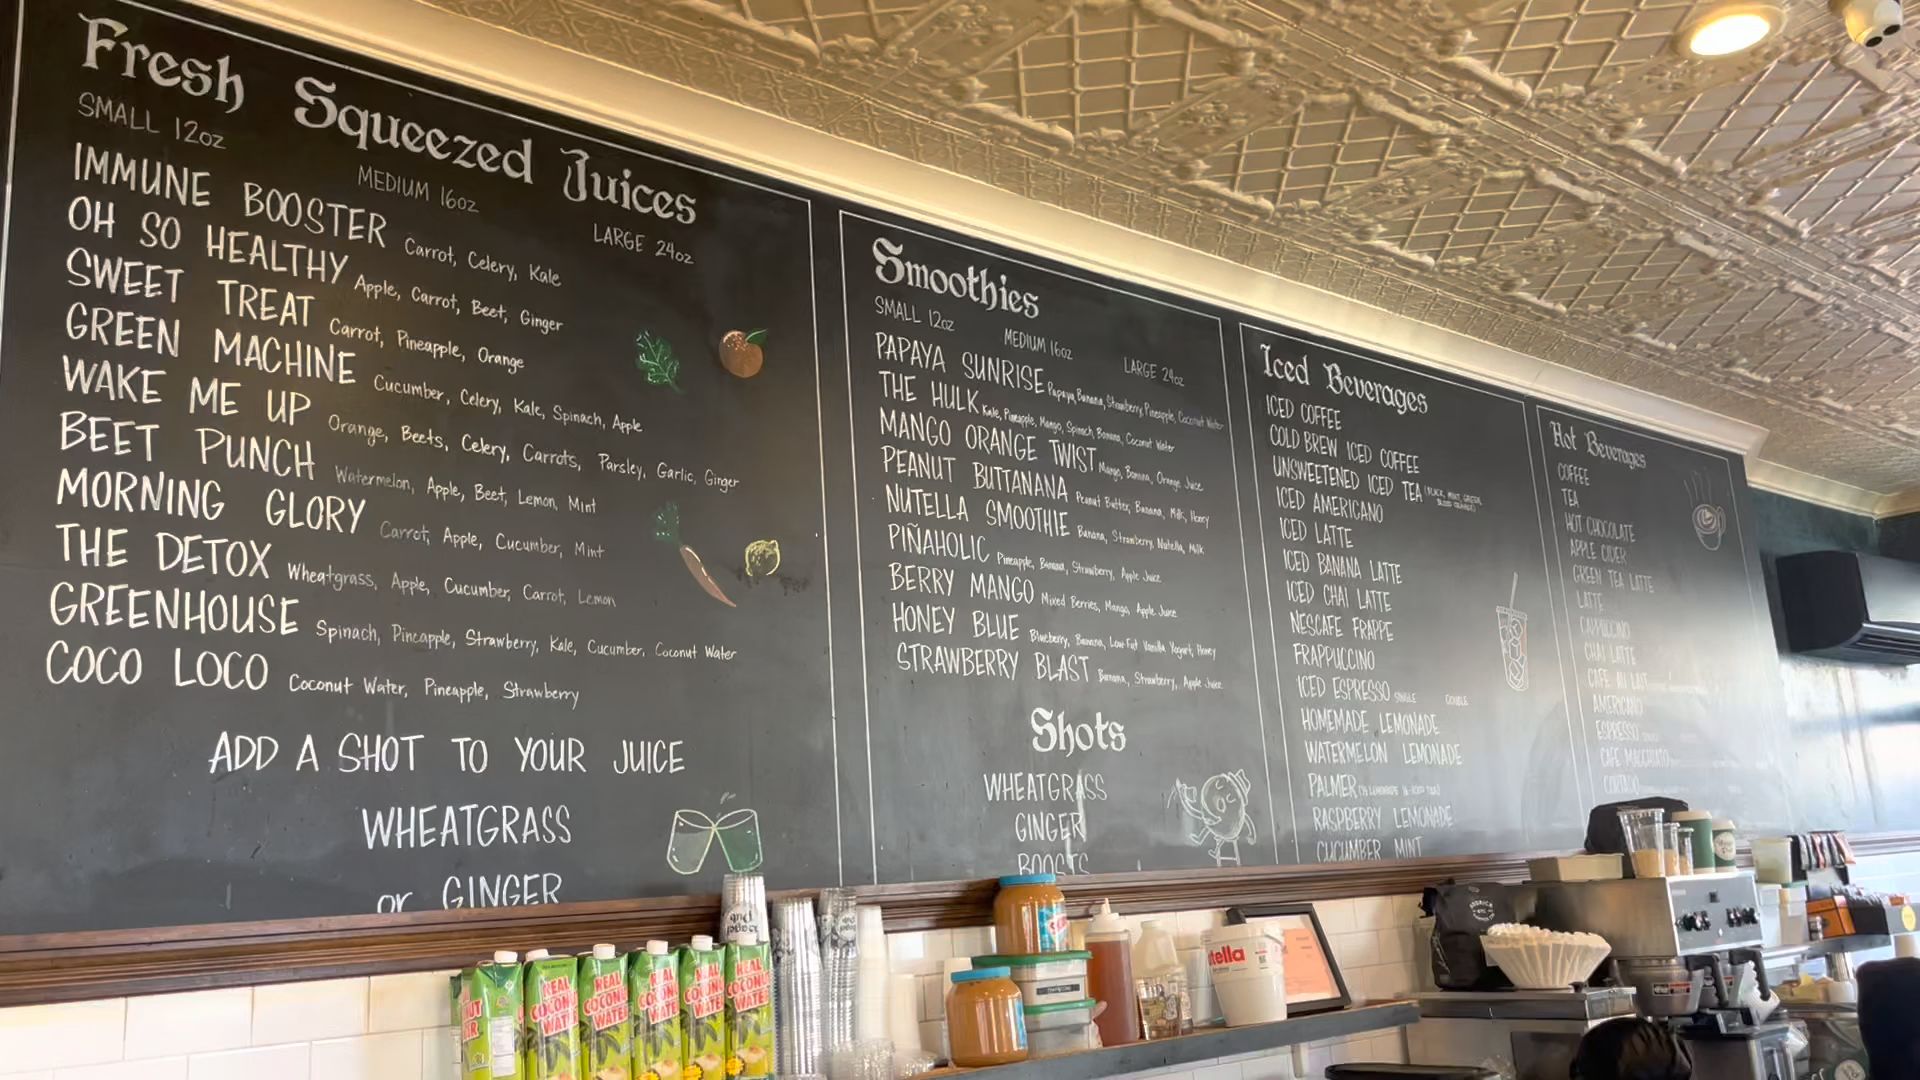 Fresh Squeezed Juices
SMALL 12oz MEDIUM 16oz LARGE 24oz
IMMUNE BOOSTER Carrot, Celery, Kale
OH SO HEALTHY Apple, Carrot, Beet, Ginger
SWEET TREAT Carrot, Pineapple, Orange
GREEN MACHINE Cucumber, Celery, Kale, Spinach, Apple
WAKE ME UP Orange, Beets, Celery, Carrots, Parsley, Garlic, Ginger
BEET PUNCH Watermelon, Apple, Beet, Lemon, Mint
MORNING GLORY Carrot, Apple, Cucumber, Mint
THE DETOX Wheatgrass, Apple, Cucumber, Carrot, Lemon
GREENHOUSE Spinach, Pineapple, Strawberry, Kale, Cucumber, Coconut Water
COCO LOCO Coconut Water, Pineapple, Strawberry
ADD A SHOT TO YOUR JUICE
WHEATGRASS
or GINGER
Smoothies
SMALL 12oz MEDIUM 16oz LARGE 24oz
PAPAYA SUNRISE Papaya, Banana, Strawberry, Pineapple, Coconut Water
THE HULK Kale, Pineapple, Mango, Spinach, Banana, Coconut Water
MANGO ORANGE TWIST Mango, Banana, Orange Juice
PEANUT BUTTANANA Peanut Butter, Banana, Milk, Honey
NUTELLA SMOOTHIE Banana, Strawberry, Nutella, Milk
PIÑAHOLIC Pineapple, Banana, Strawberry, Apple Juice
BERRY MANGO Mixed Berries, Mango, Apple Juice
HONEY BLUE Blueberry, Banana, Low-Fat Vanilla Yogurt, Honey
STRAWBERRY BLAST Banana, Strawberry, Apple Juice
Shots
WHEATGRASS
GINGER
BOOSTS
Iced Beverages
ICED COFFEE
COLD BREW ICED COFFEE
UNSWEETENED ICED TEA (BLACK, MINT, GREEN, BLOOD ORANGE)
ICED AMERICANO
ICED LATTE
ICED BANANA LATTE
ICED CHAI LATTE
NESCAFE FRAPPE
FRAPPUCCINO
ICED ESPRESSO SINGLE DOUBLE
HOMEMADE LEMONADE
WATERMELON LEMONADE
PALMER
RASPBERRY LEMONADE
CUCUMBER MINT
Hot Beverages
COFFEE
TEA
HOT CHOCOLATE
APPLE CIDER
GREEN TEA LATTE
LATTE
CAPPUCCINO
CHAI LATTE
CAFE AU LAIT
AMERICANO
ESPRESSO
CAFE MACCHIATO
CORTADO
REAL COCONUT WATER
REAL COCONUT WATER
REAL COCONUT WATER
REAL COCONUT WATER
REAL COCONUT WATER
tella